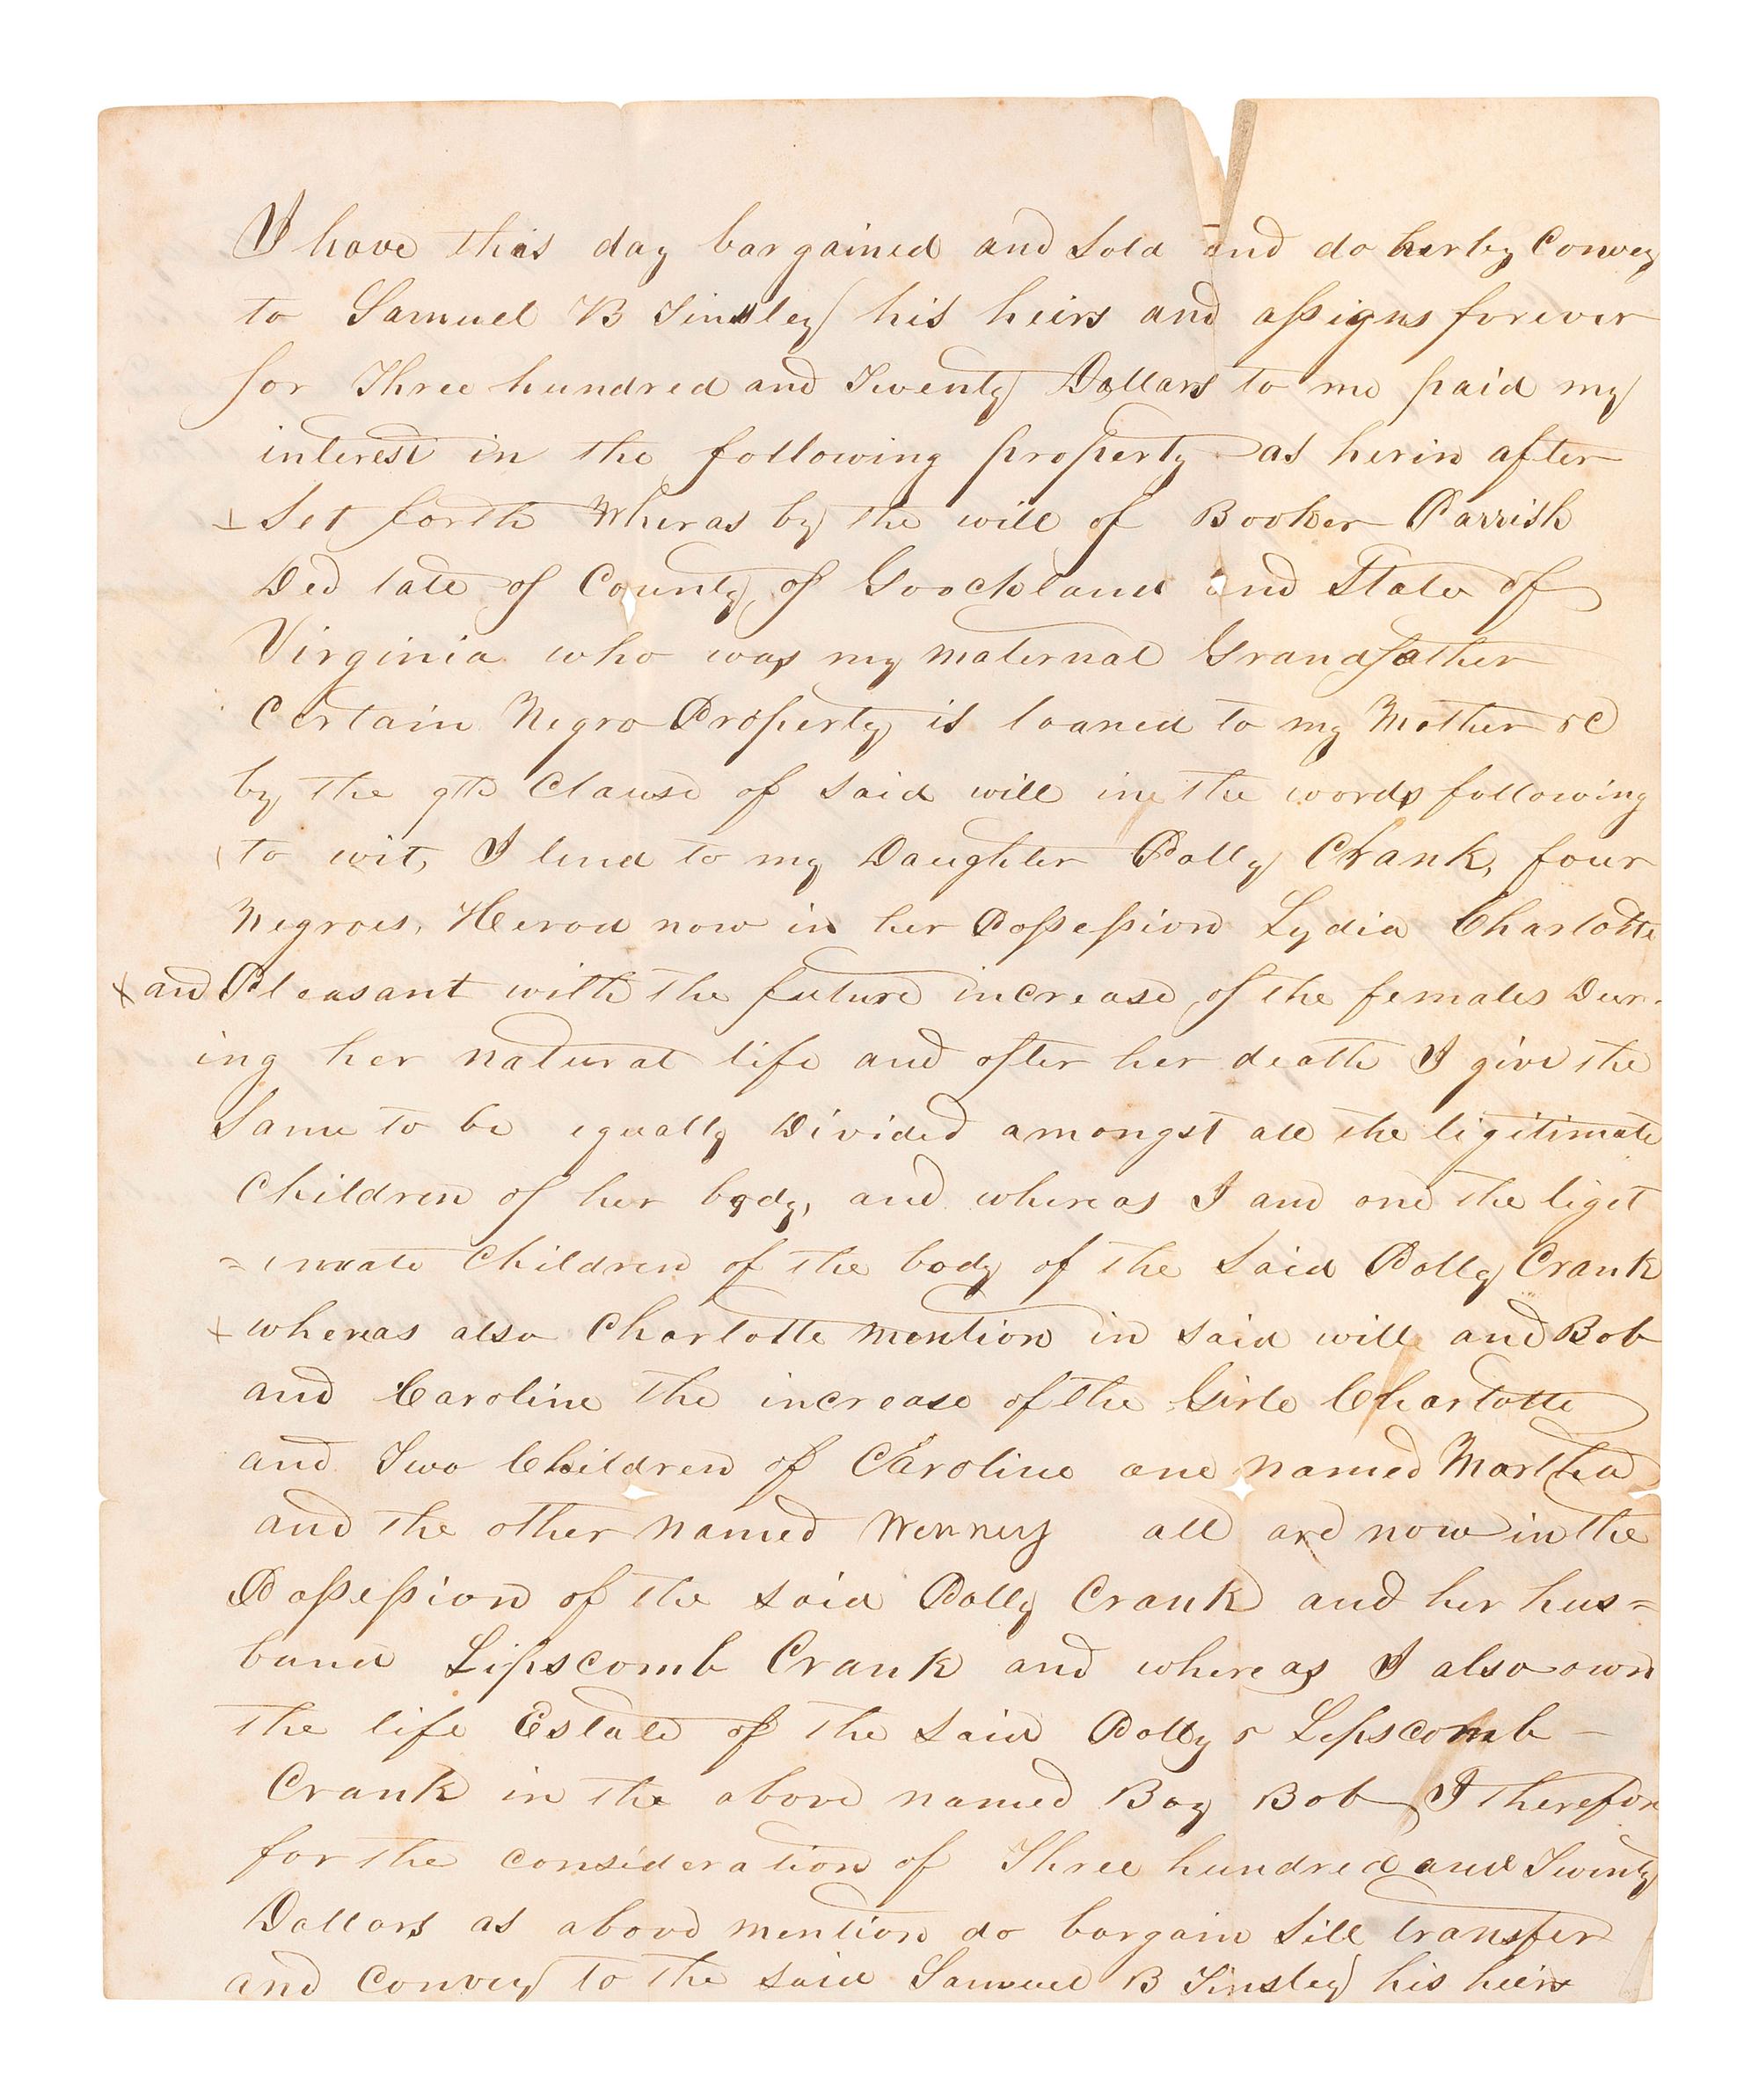 I have this day bargained and Sold and do herby Convey
to Samuel B Tinsley his heirs and assigns forever
for Three hundred and Twenty Dollars to me paid my
interest in the following property as herin after
Set forth Wheras by the will of Booker Parrish
Ded late of County of Goochland and State of
Virginia who was my maternal Grandfather
Certain Negro Property is loaned to my Mother &C
by the 9th Clause of Said will in the words following
to wit, I lend to my Daughter Polly Crank, four
Negroes, Herod now in her Possession Lydia Charlotte
x and Pleasant with the future increase of the females Dur-
ing her natural life and after her death I give the
Same to be equally Divided amongst all the legitimate
Children of her body, and whereas I am one the legit
=imate Children of the body of the Said Polly Crank
x whereas also Charlotte mention in said will and Bob
and Caroline the increase of the Girle Charlotte
and Two Children of Caroline one named Martha
and the other named Wenney all are now in the
Possession of the said Polly Crank and her hus=
band Lipscomb Crank and whereas I also own
the life Estate of the said Polly & Lipscomb -
Crank in the above named Boy Bob I therefore
for the consideration of Three hundred and Twenty
Dollars as above mention do bargain Sell transfer
and Convey to the said Samuel B Tinsley his heirs